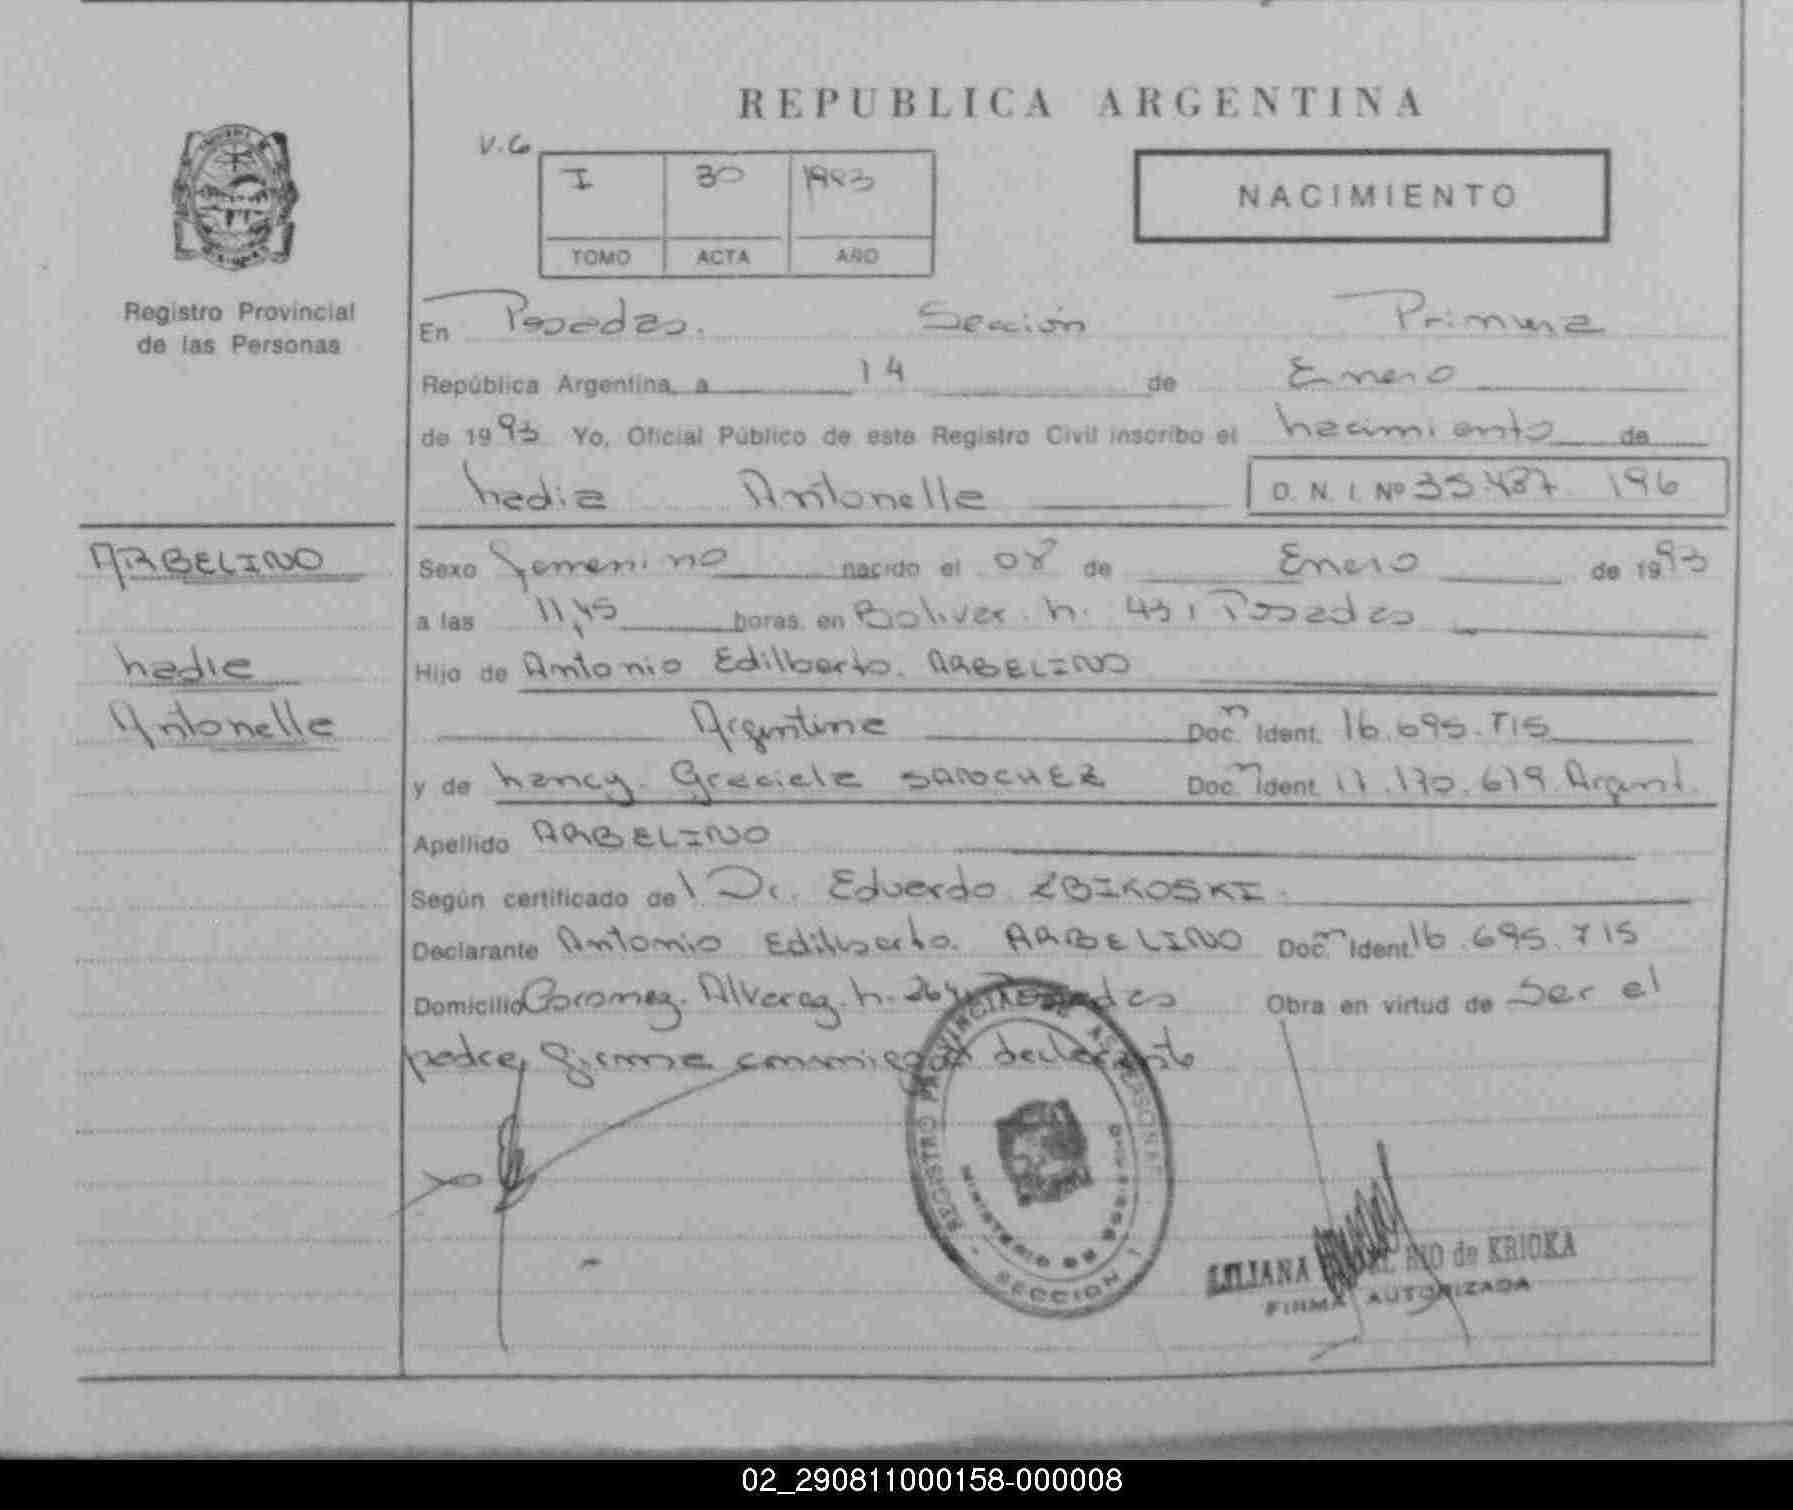 REPUBLICA ARGENTINA
V.6
I 30 1993
TOMO ACTA AÑO
NACIMIENTO
Registro Provincial
de las Personas
En Posadas. Sección Primera
República Argentina, a 14 de Enero
de 1993 Yo, Oficial Público de este Registro Civil inscribo el nacimiento de
Nadia Antonella D. N. I. Nº 35.437 196
ARBELINO
Nadia
Antonella
Sexo femenino nacido el 08 de Enero de 1993
a las 11,45 horas en Bolivar. N. 431 Posadas
Hijo de Antonio Edilberto. ARBELINO
Argentina Doc. Ident. 16.695.715
y de Nancy. Graciela SANCHEZ Doc. Ident. 17.170.679 Argent.
Apellido ARBELINO
Según certificado del Dr. Eduardo ZBIKOSKI.
Declarante Antonio Edilberto. ARBELINO Doc. Ident. 16.695.715
Domicilio Alvarez. N. Posadas Obra en virtud de Ser el
padre, firma conmigo el declarante
REGISTRO PROVINCIAL DE LAS PERSONAS
MINISTERIO DE GOBIERNO
SECCION 1
LILIANA RIO de KRIOKA
FIRMA AUTORIZADA
02_290811000158-000008